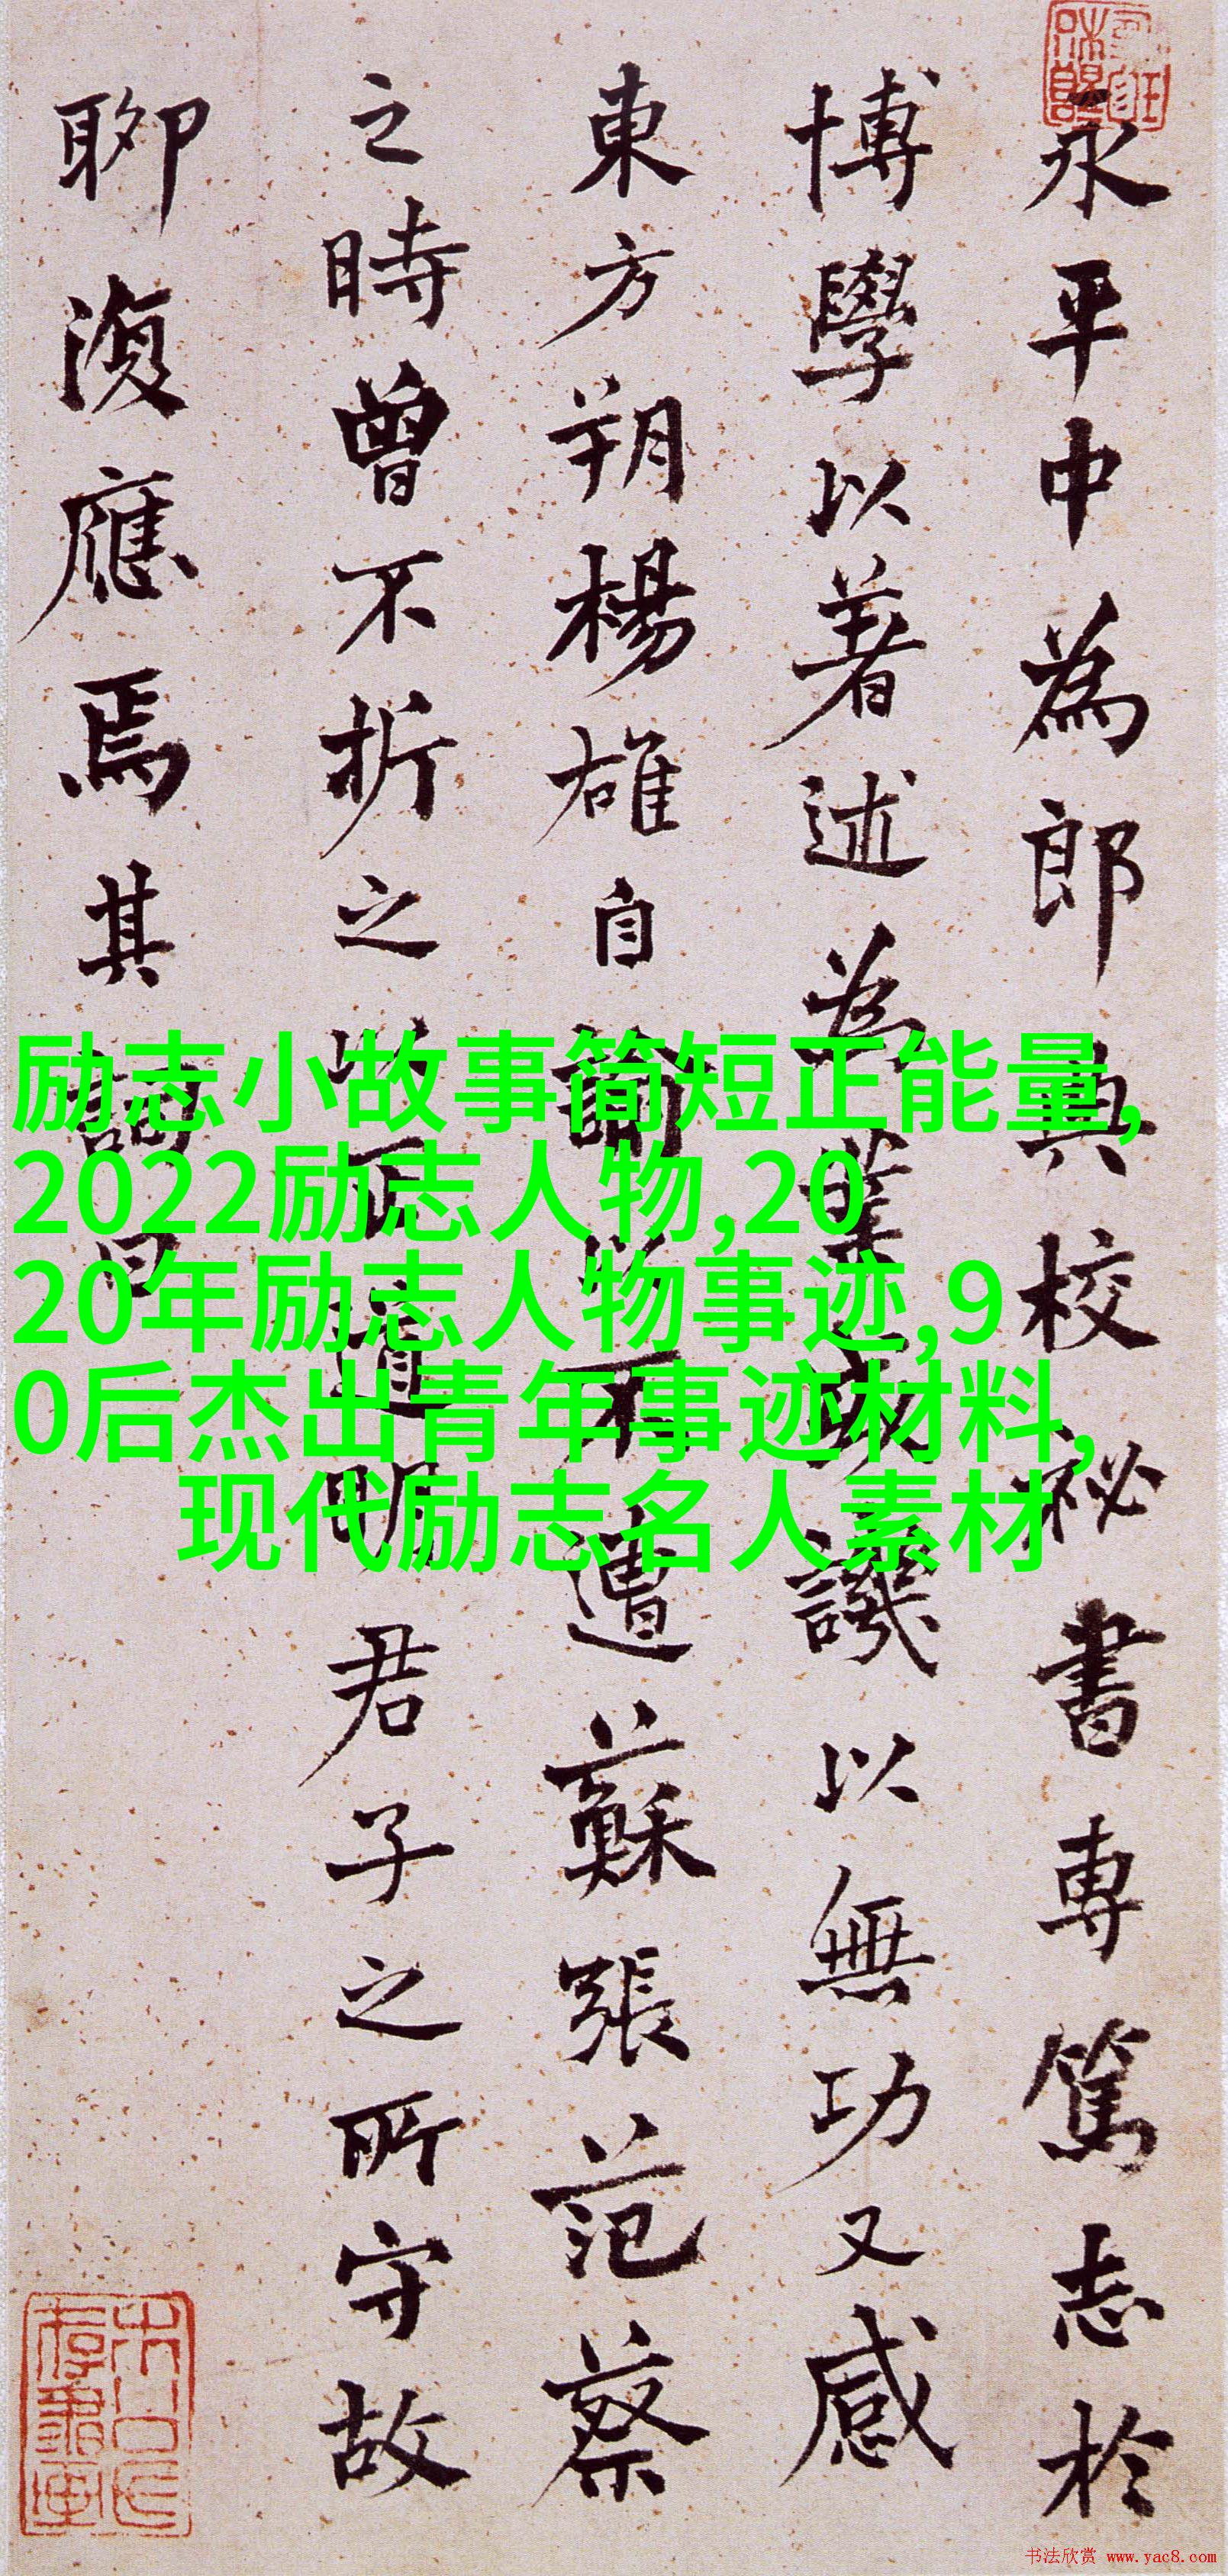 永平中為郎典校祕書專篤志於
博學以著述為業或譏以無功又感
東方朔楊雄自諭以不遭蘇張范蔡
之時曾不折之以正道明君子之所守故
聊復應焉其詞曰
励志小故事简短正能量,
2022励志人物,20
20年励志人物事迹,9
0后杰出青年事迹材料,
现代励志名人素材
书法欣赏 www.yac8.com